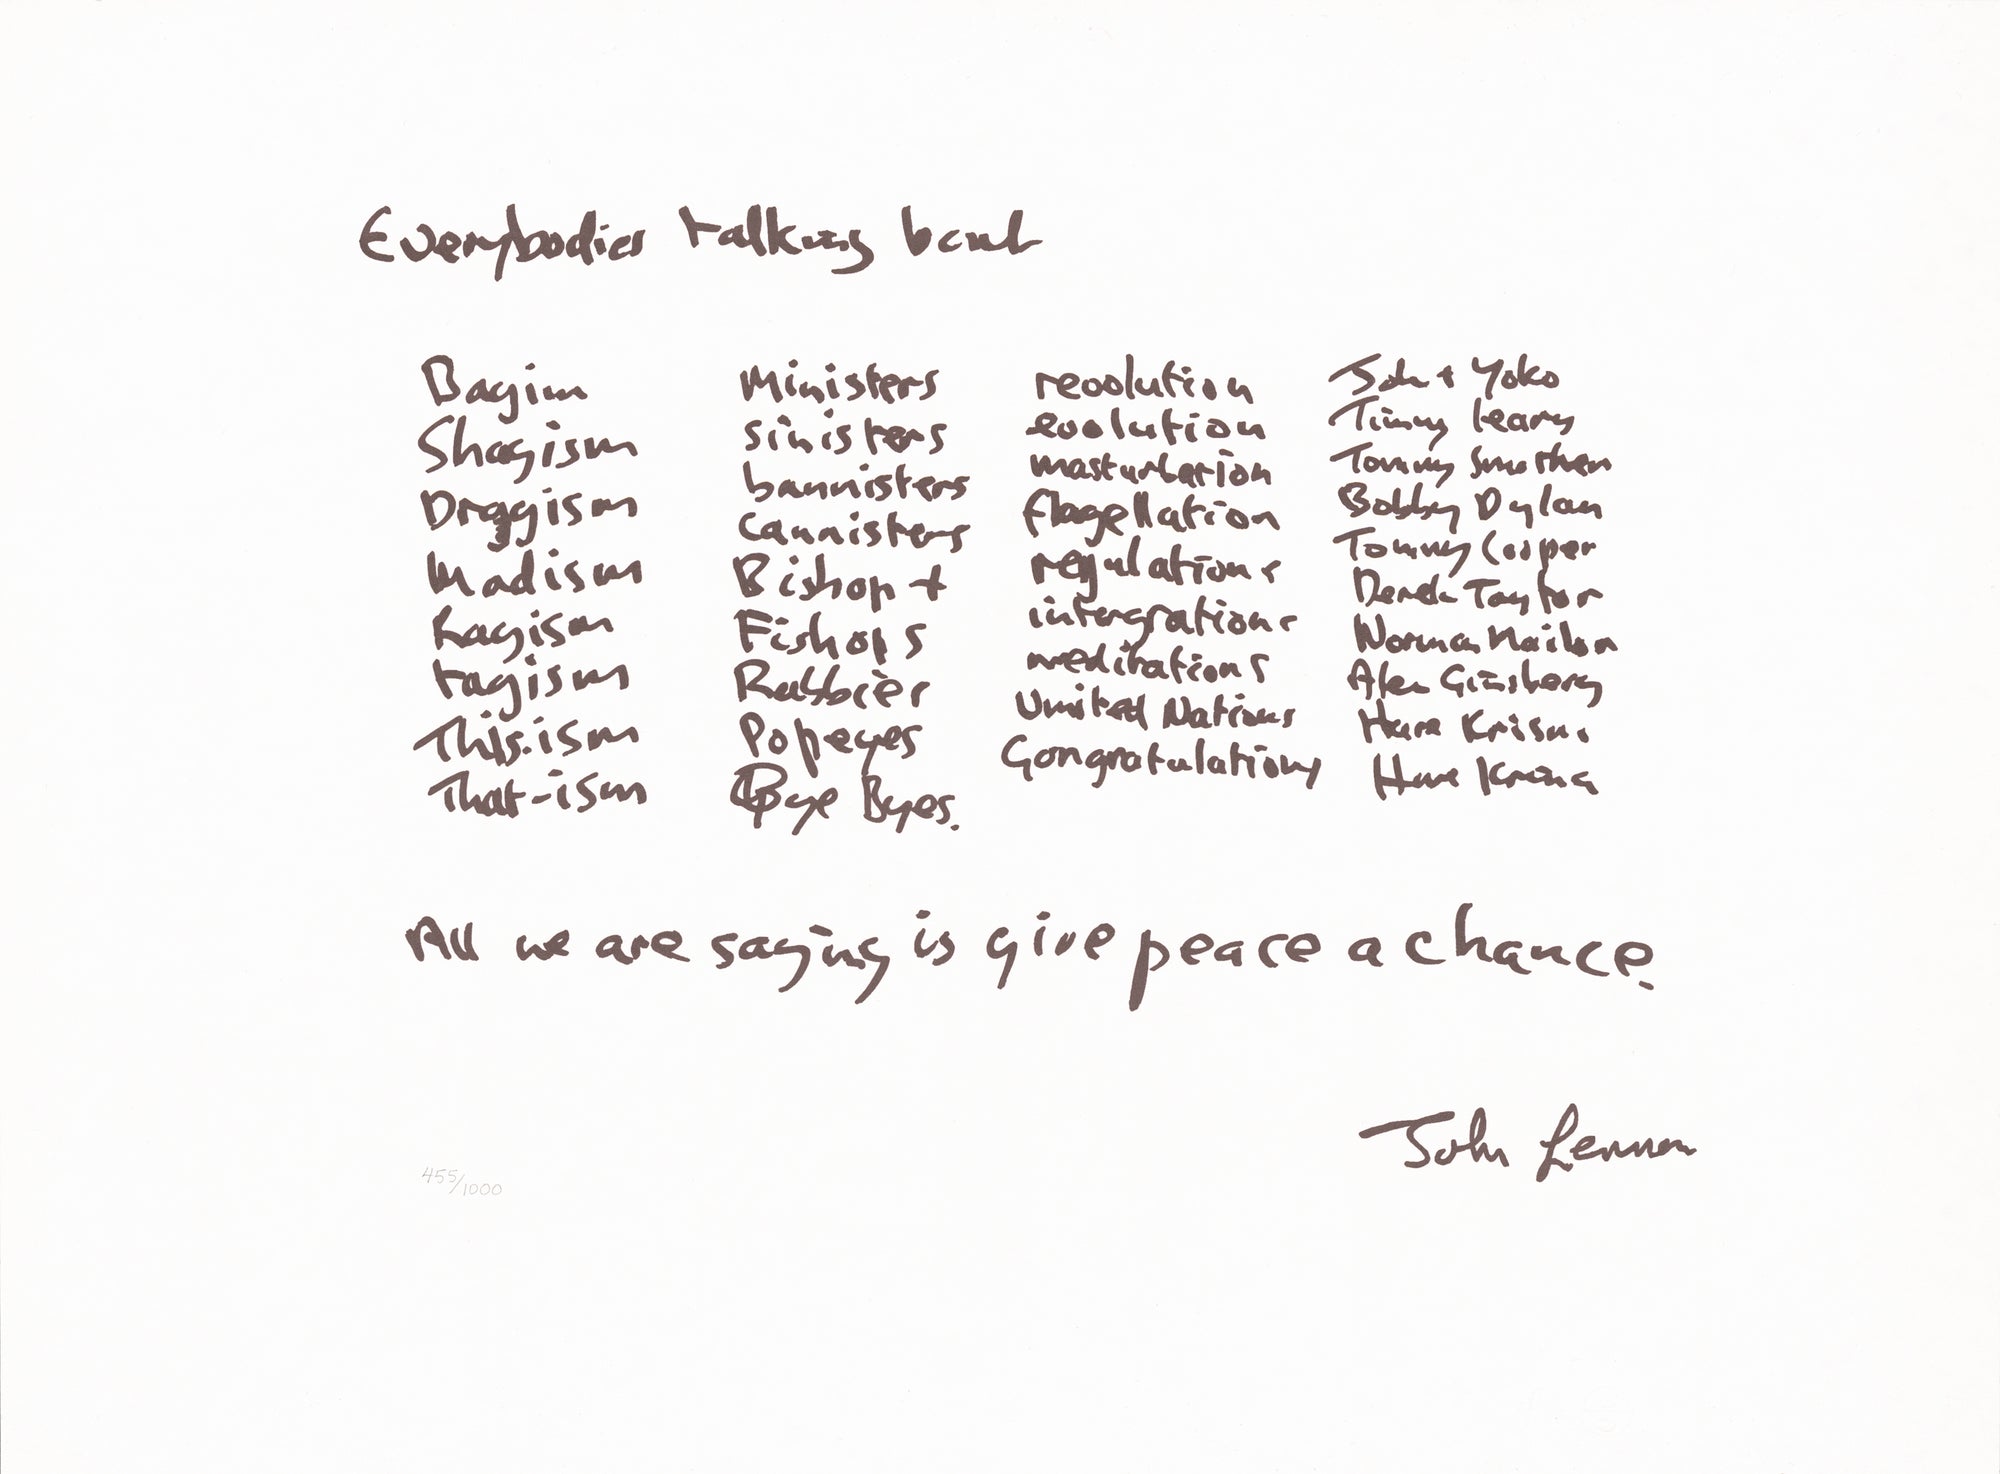 Everybodies talking bout
Bagim
Shagism
Draggism
Madism
Ragism
tagism
This.ism
That-ism
Ministers
sinisters
bannisters
cannisters
Bishop +
Fishops
Rabbier
Popeyes
Bye Byes.
revolution
evolution
masturbation
flagellation
regulations
intergrations
meditations
United Nations
Congratulations
John + Yoko
Timmy Leary
Tommy Smothers
Bobby Dylan
Tommy Cooper
Derek Taylor
Norman Mailer
Alen Ginsberg
Hare Krisna
Hare Krisna
All we are saying is give peace a chance.
John Lennon
455/1000